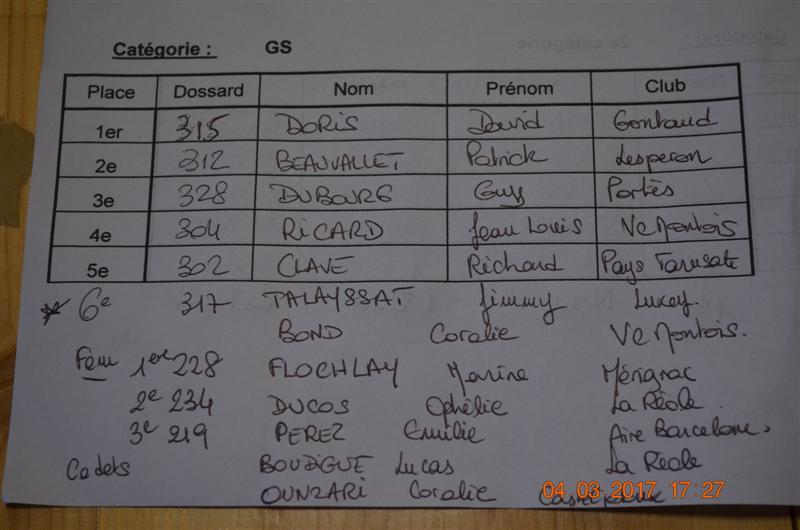 Catégorie : GS
Place Dossard Nom Prénom Club
1er 315 DORIS David Gontaud
2e 312 BEAUVALLET Patrick Lesperon
3e 328 DUBOURG Guy Portès
4e 304 RICARD Jean Louis VC Montois
5e 302 CLAVE Richard Pays Tarusate
* 6e 317 TALAYSSAT Jimmy Luxey.
BOND Coralie VC Montois.
Fem 1ere 228 FLOCHLAY Marine Mérignac
2e 234 DUCOS Ophélie La Réole
3e 219 PEREZ Emilie Aire Barcelone
Cadets BOUDIGUE Lucas La Réole
OUNZARI Coralie
04 03 2017 17:27